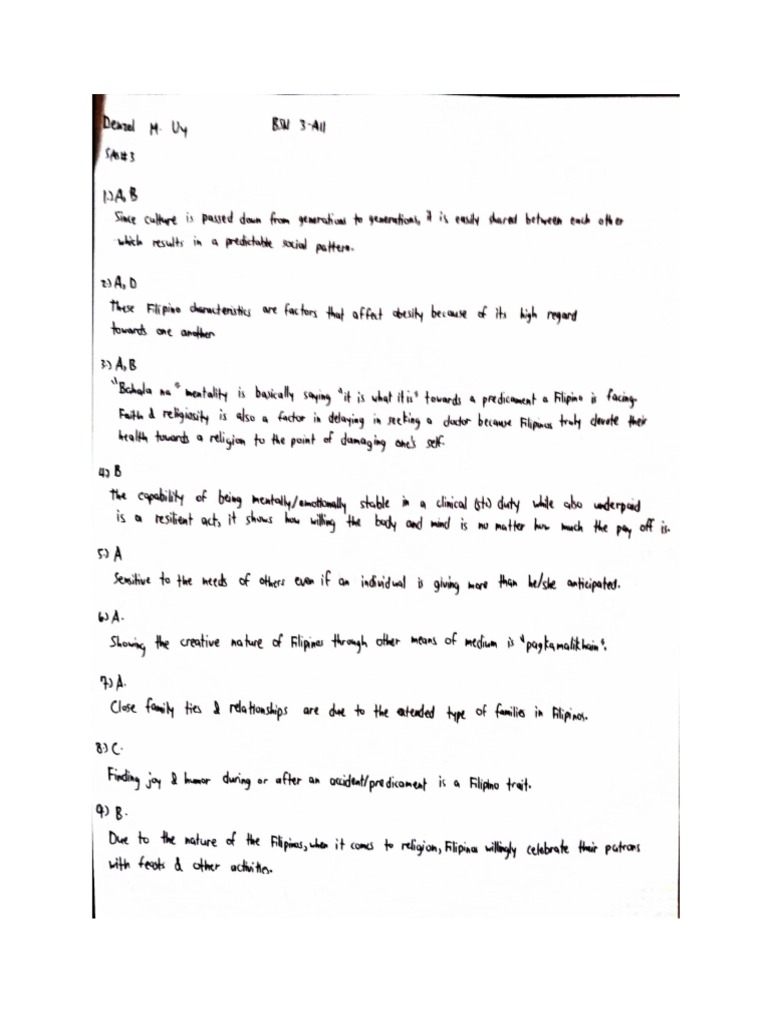 Denzel M. Uy BSN 3-A11
SAS#3
1.) A, B
Since culture is passed down from generations to generations, it is easily shared between each other
which results in a predictable social pattern.
2.) A, D
These Filipino characteristics are factors that affect obesity because of its high regard
towards one another
3.) A, B
"Bahala na" mentality is basically saying "it is what it is" towards a predicament a Filipino is facing.
Faith & religiosity is also a factor in delaying in seeking a doctor because Filipinos truly devote their
health towards a religion to the point of damaging one's self.
4.) B
The capability of being mentally/emotionally stable in a clinical duty while also underpaid
is a resilient act, it shows how willing the body and mind is no matter how much the pay off is.
5.) A
Sensitive to the needs of others even if an individual is giving more than he/she anticipated.
6.) A.
Showing the creative nature of Filipinos through other means of medium is "pagkamalikhain".
7.) A.
Close family ties & relationships are due to the extended type of families in Filipinos.
8.) C.
Finding joy & humor during or after an accident/predicament is a Filipino trait.
9.) B.
Due to the nature of the Filipinos, when it comes to religion, Filipinos willingly celebrate their patrons
with feasts & other activities.